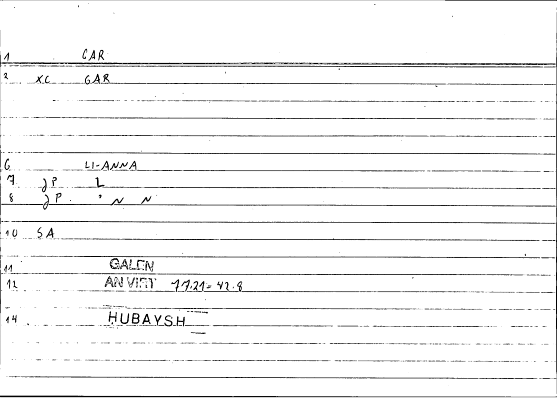 1 CAR
2 XC GAR
6 LI-ANNA
7 JP L
8 JP. ' N N
10 SA
11 GALEN
12 AN VIET 77.21 = 42.8
14 HUBAYSH